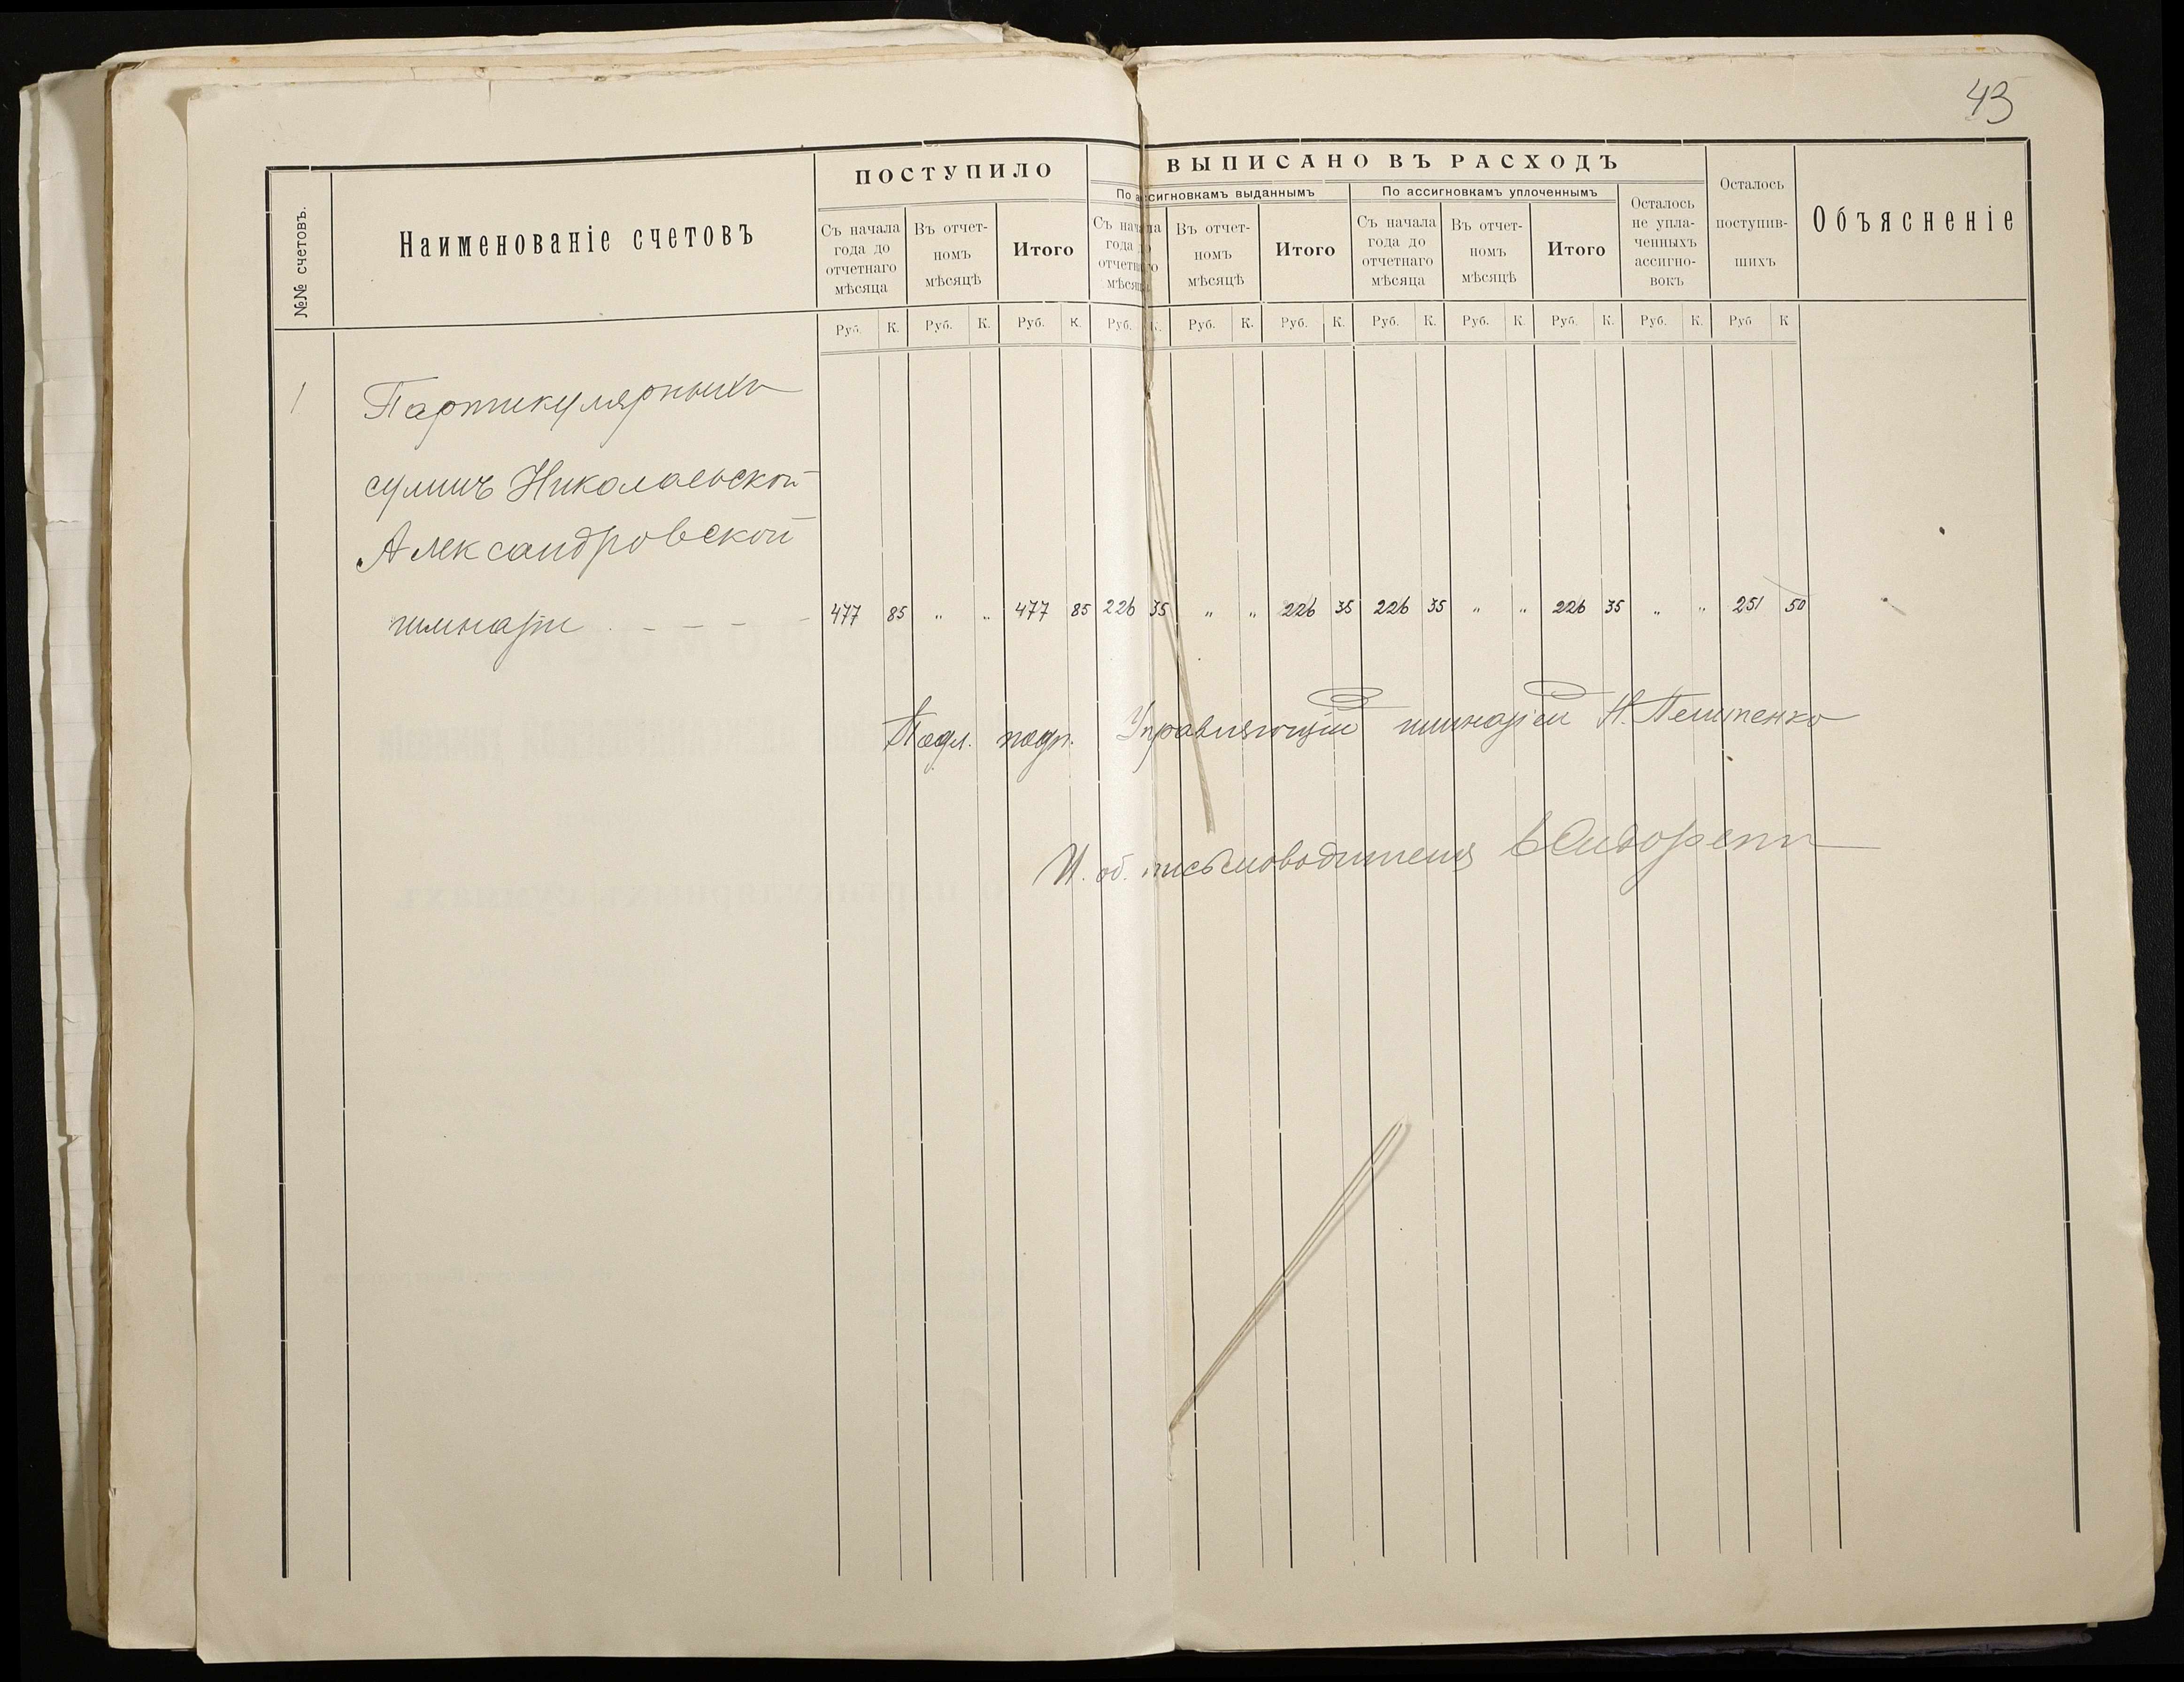 43
№№ счетовъ.
Наименованіе счетовъ
ПОСТУПИЛО
Съ начала
года до
отчетнаго
мѣсяца
Въ отчет-
номъ
мѣсяцѣ
Итого
ВЫПИСАНО ВЪ РАСХОДЪ
По ассигновкамъ выданнымъ
Съ начала
года до
отчетнаго
мѣсяца
Въ отчет-
номъ
мѣсяцѣ
Итого
По ассигновкамъ уплоченнымъ
Съ начала
года до
отчетнаго
мѣсяца
Въ отчет-
номъ
мѣсяцѣ
Итого
Осталось
не упла-
ченныхъ
ассигно-
вокъ
Осталось
поступив-
шихъ
Объясненіе
Руб. К. Руб. К. Руб. К. Руб. К. Руб. К. Руб. К. Руб. К. Руб. К. Руб. К. Руб. К. Руб К
1 Партикулярныхъ
суммъ Николаевской
Александровской
гимназіи - - - - 477 85 " " 477 85 226 35 " " 226 35 226 35 " " 226 35 " " 251 50
Подл. подп. Управляющій гимназіей Н.
И. об. письмоводителя